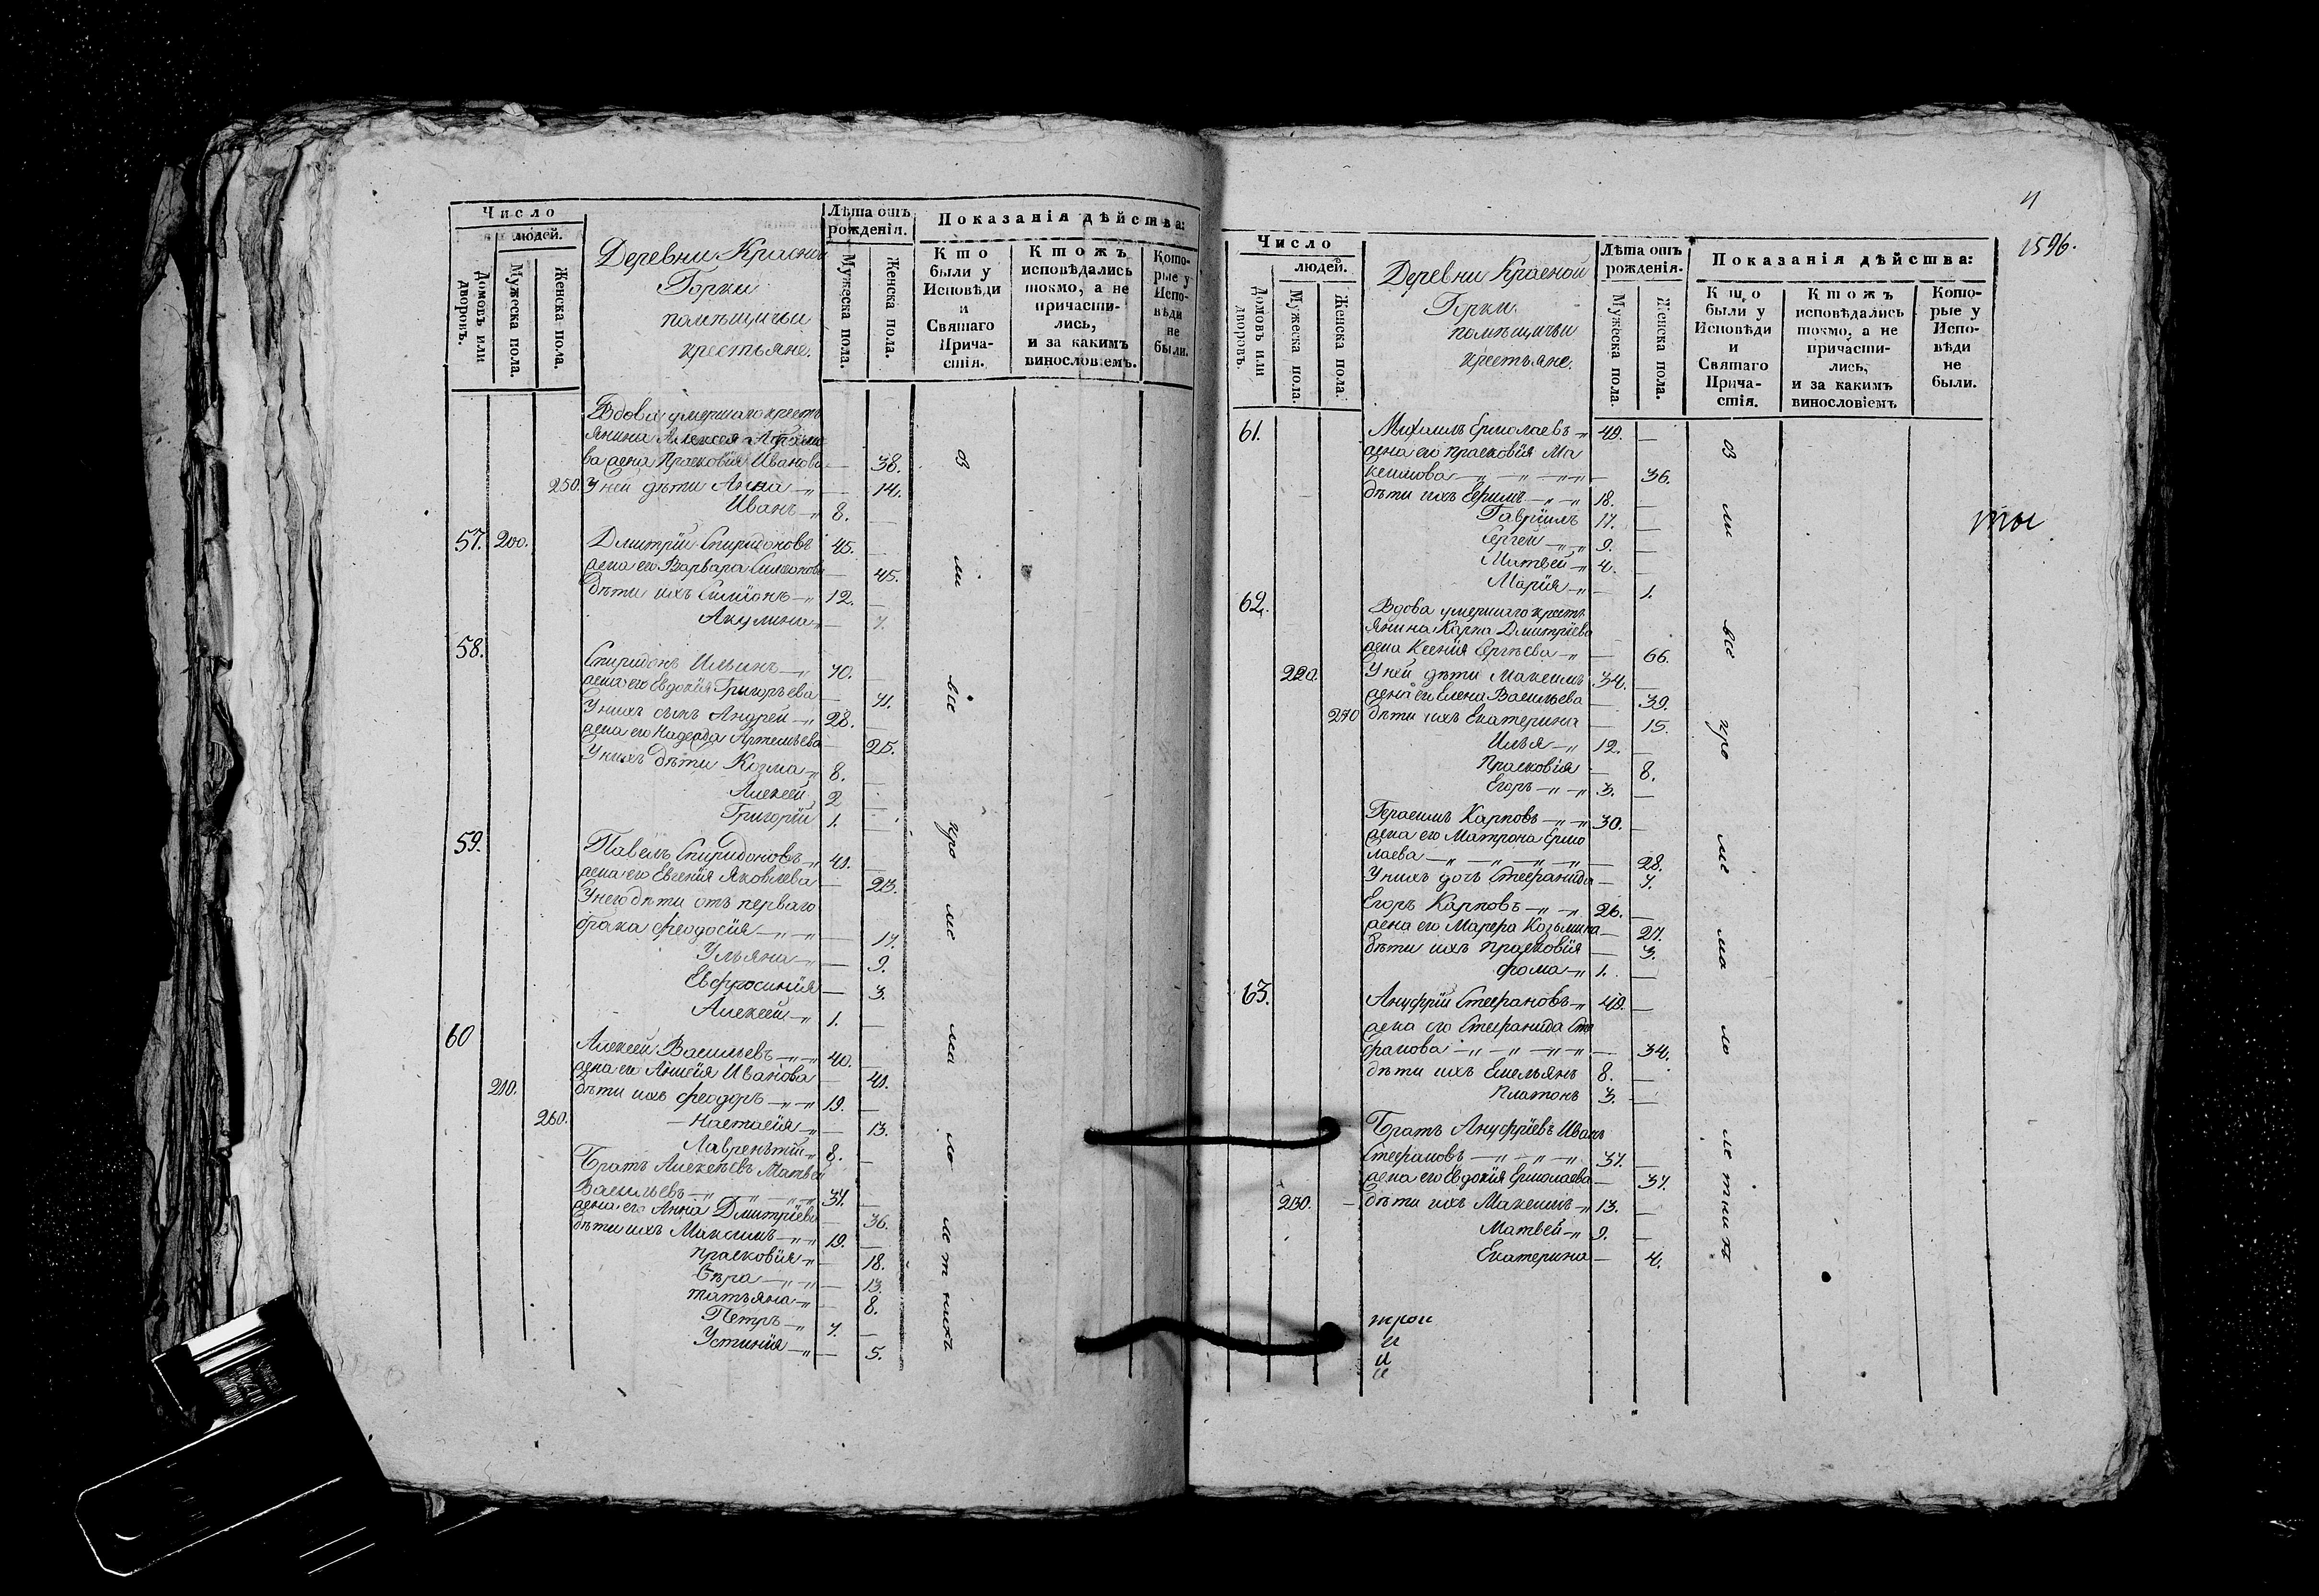 Число
людей.
Домовъ или дворовъ.
Мужеска пола.
Женска пола.
Деревни Красной
Горки
помѣщичьи
крестьяне.
Лѣта отъ рожденія.
Мужеска пола.
Женска пола.
Показанія дѣйства:
Кто были у Исповѣди и Святаго Причастія.
Ктожъ исповѣдались токмо, а не причастились, и за какимъ винословіемъ.
Которые у Исповѣди не были.
Вдова умершаго кресть
янина Алексея
ва жена Прасковія Иванова — 38.
250. У ней дѣти Анна — 14.
Иванъ 8. —
57. 200. Дмитрій Спиридоновъ 45. —
жена его Варвара Симионова — 45.
дѣти ихъ Симіонъ 12. —
Акулина — 7.
58. Спиридонъ Ильинъ 70. —
жена его Евдокія Григорьева — 71.
У нихъ сынъ Андрей 28. —
жена его Надежда Артемьева — 25.
У нихъ дѣти Козма 8. —
Алексей 2 —
Григорій 1. —
59. Павелъ Спиридоновъ 41. —
жена его Евгенія Яковлева — 23.
У него дѣти отъ перваго
брака Феодосія — 17.
Ульяна — 9.
Евфросинія — 3.
Алексей 1. —
60 Алексей Васильевъ 40. —
жена его Анисія Иванова — 41.
210. дѣти ихъ Феодоръ 19. —
260. Настасія — 13.
Лаврентій 8. —
Братъ Алексѣевъ Матвей
Васильевъ 37. —
жена его Анна Дмитріева — 36.
дѣти ихъ Максимъ 19. —
Прасковія — 18.
Вѣра — 13.
Татьяна — 8.
Петръ 7. —
Устинія — 5.
оз
ли
все
про
ме
ма
ло
ле
т
нихъ
1596.
Число
людей.
Домовъ или дворовъ.
Мужеска пола.
Женска пола.
Деревни Красной
Горки
помѣщичьи
крестьяне.
Лѣта отъ рожденія.
Мужеска пола.
Женска пола.
Показанія дѣйства:
Кто были у Исповѣди и Святаго Причастія.
Ктожъ исповѣдались токмо, а не причастились, и за какимъ винословіемъ
Которые у Исповѣди не были.
61. Михаилъ Ермолаевъ 49. —
жена его Прасковія Ма
ксимова — 36.
дѣти ихъ Ефимъ 18. —
Гавріилъ 17. —
Сергей 9. —
Матвей 4. —
Марія — 1.
62. Вдова умершаго кресть
янина Карпа Дмитріева
жена Ксенія Сергѣева — 66.
220. У ней дѣти Максимъ 34. —
жена его Елена Васильева — 39.
270 дѣти ихъ Екатерина — 15.
Илья 12. —
Прасковія — 8.
Егоръ 3. —
Герасимъ Карповъ 30. —
жена его Матрона Ермо
лаева — 28.
У нихъ дочь Стефанида — 7.
Егоръ Карповъ 26. —
жена его Марфа Козьмина — 27.
дѣти ихъ Прасковія — 3.
Фома 1. —
63. Ануфрій Стефановъ 49. —
жена его Стефанида Сте
фанова — 34.
дѣти ихъ Емельянъ 8. —
Платонъ 3. —
Братъ Ануфріевъ Иванъ
Стефановъ 37. —
жена его Евдокія Ермолаева — 37.
230. дѣти ихъ Максимъ 13. —
Матвей 9. —
Екатерина — 4.
оз
ли
все
про
ме
ма
ло
ле
т
трои
и
и
и